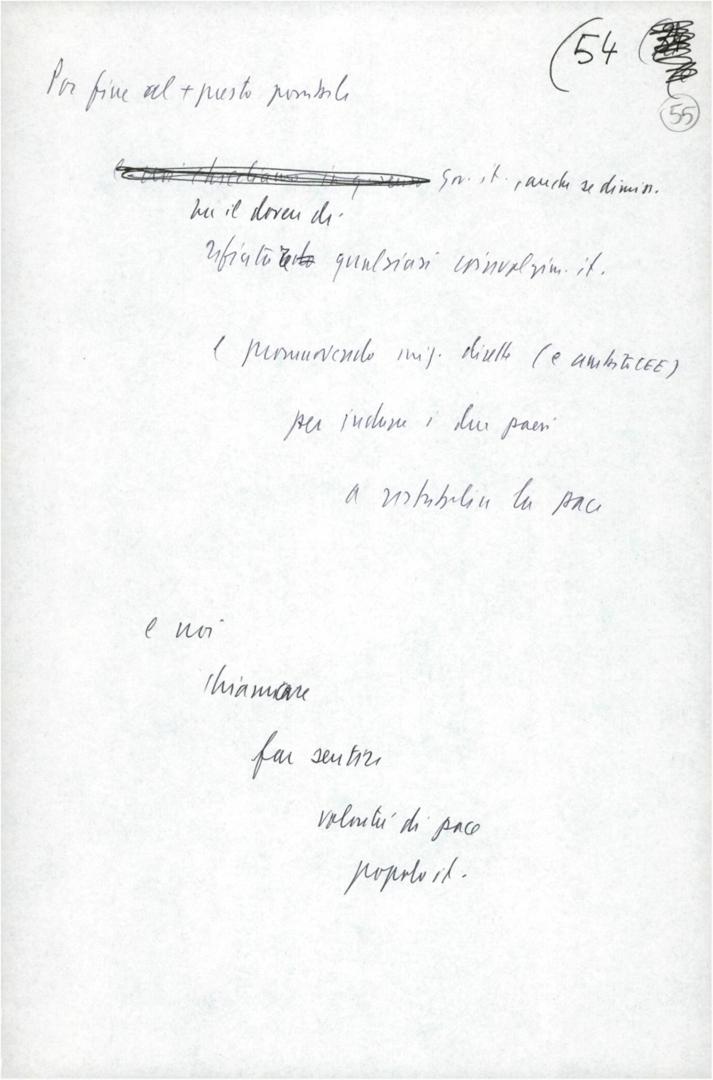 (54
55
Por fine al + presto possibile
Gov. it., anche se dimis.
ha il dovere di.
rifiutare qualsiasi coinvolgim. it.
e promuovendo iniz. dirette (e ambito CEE)
per indurre i due paesi
a ristabilire la pace
e noi
chiamare
far sentire
volontà di pace
popolo it.